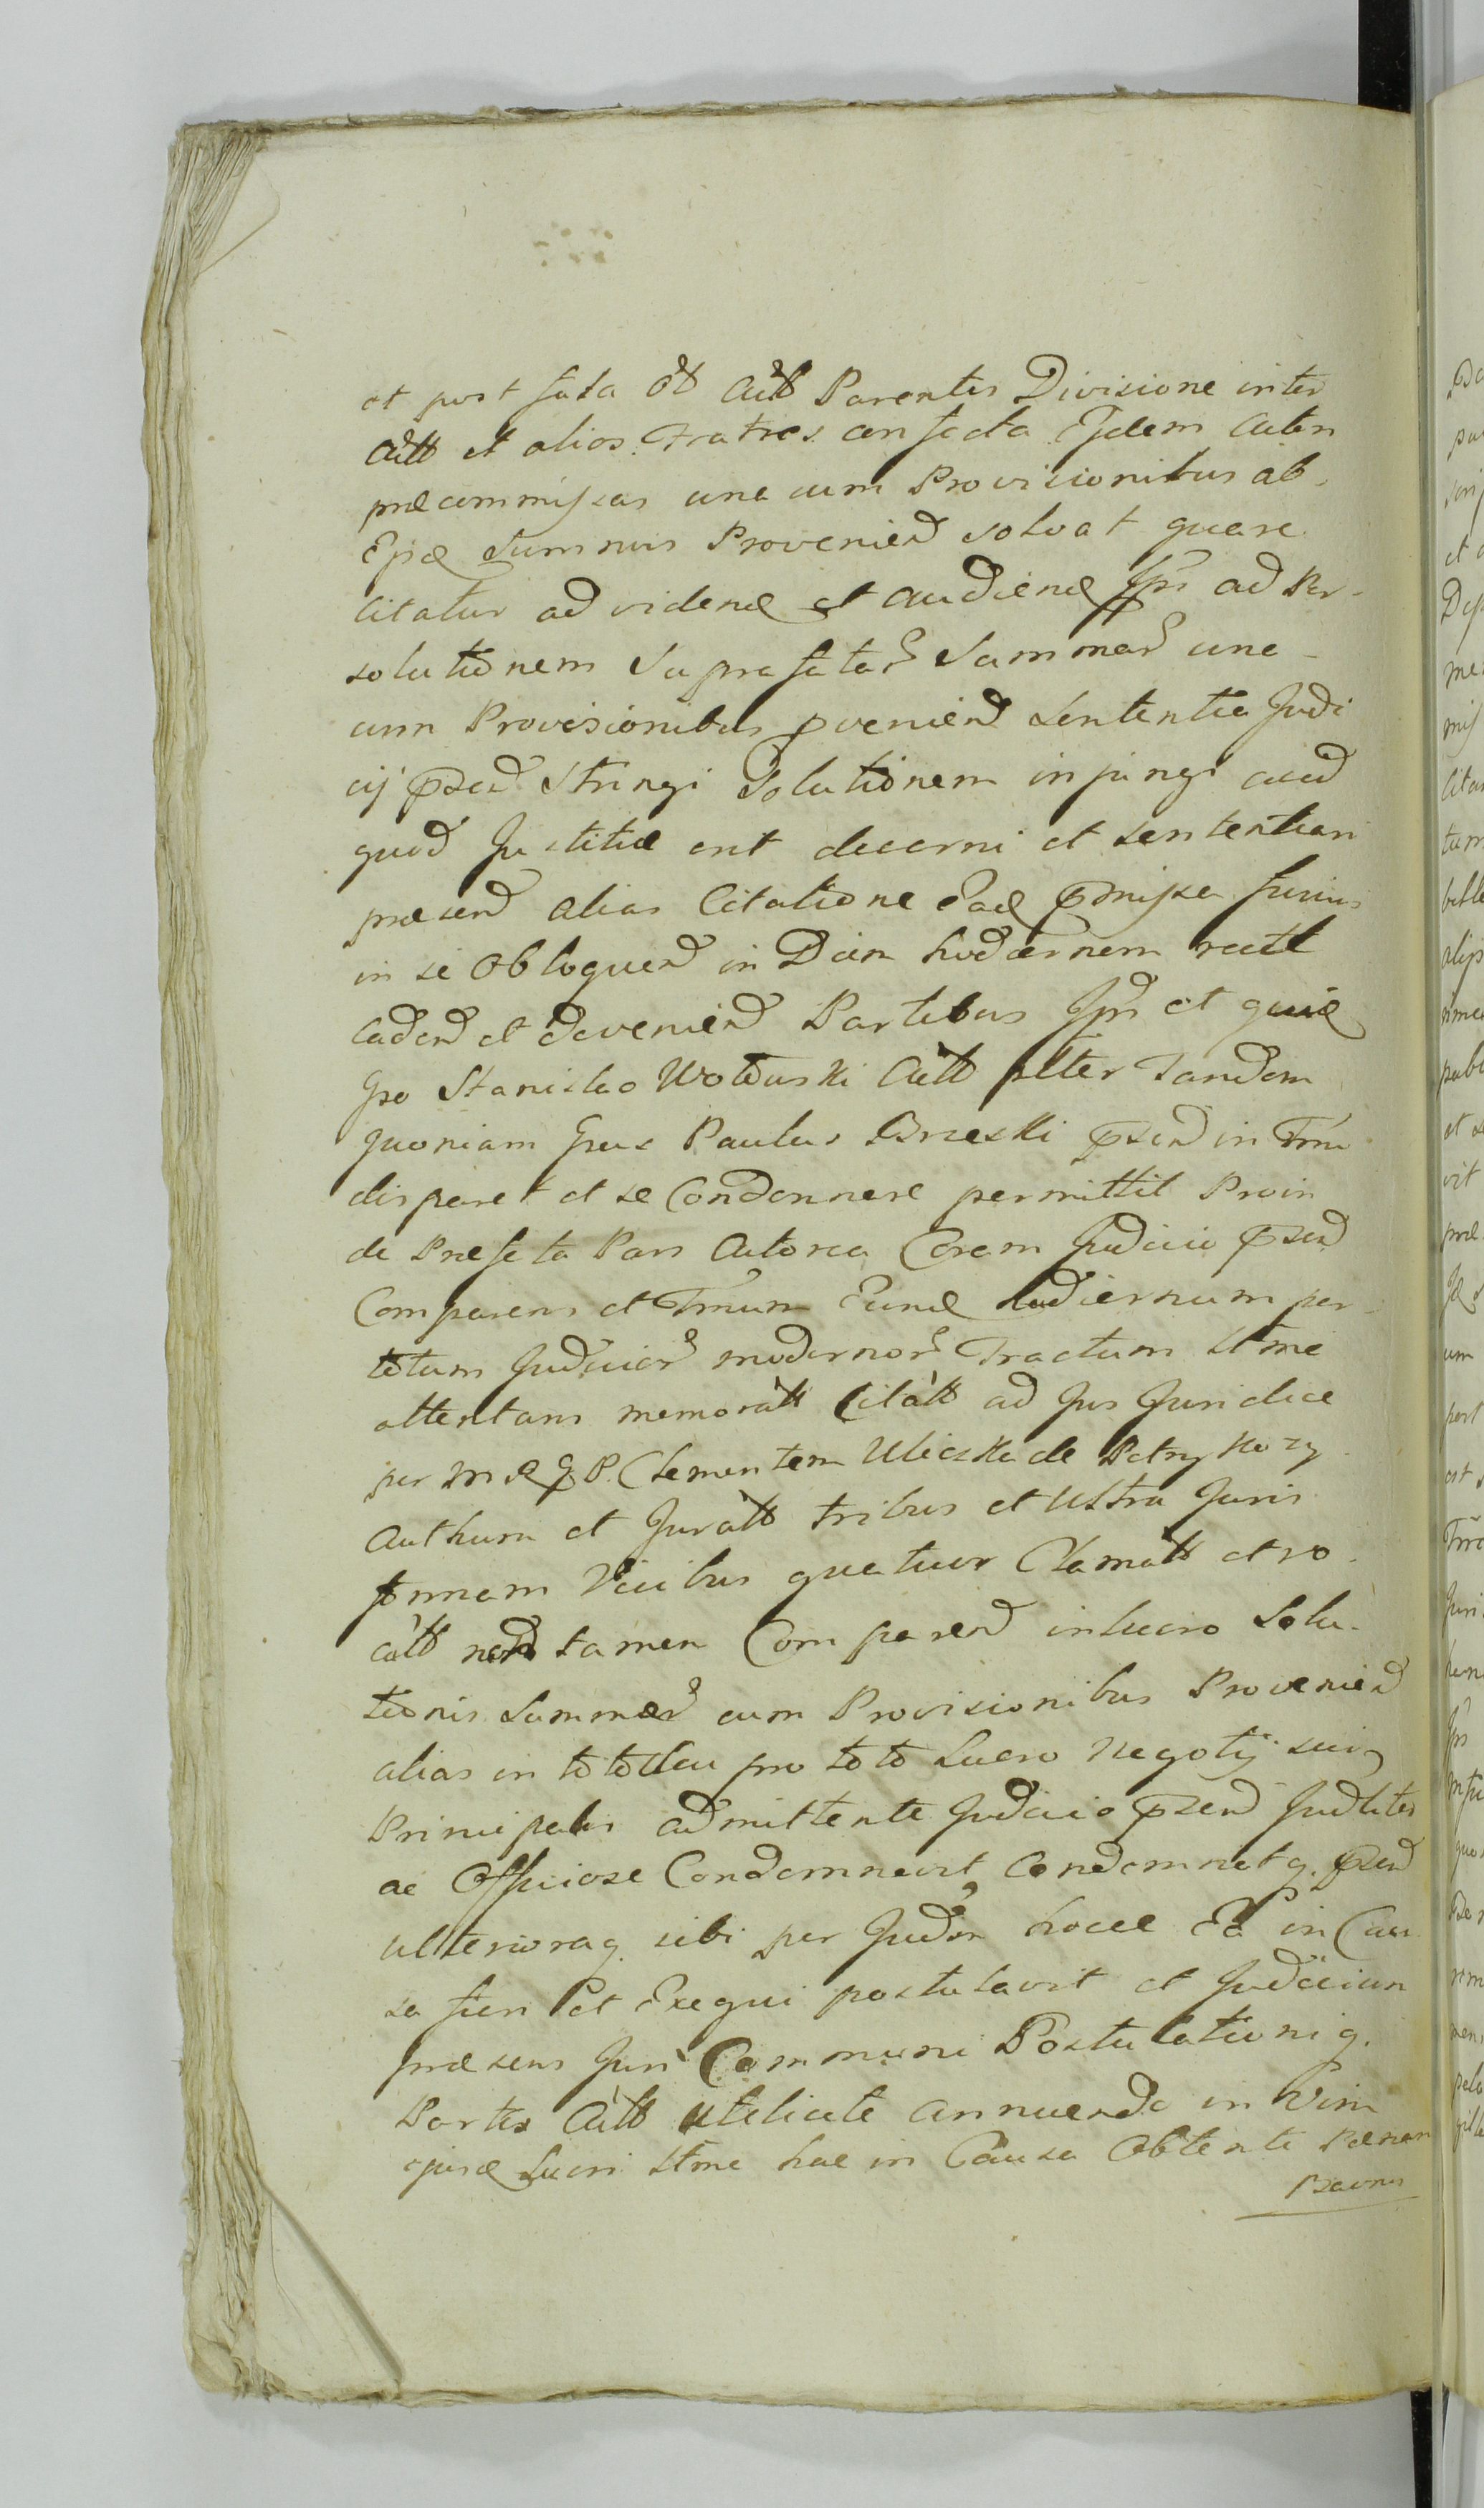 et post fata Od Actt Parentis Divisione inter
Actt et alios Fratres confecta Ejdem Acten
præcommissas una cum Provisionibus ab
Epd Summis Proveniend solvat quare
Citatur ad videnđ et audienđ Ipn ad Per-
solutionem Suprafatar Summar una
cum Provisionibus pveniend Sententia Judi
cij pzend Stringi Solutionem injungi aeud
quod Justitiæ erit decerni et sententiari
præsend alias Citatione Ead pmissa Furius
in se Obloquend in Diem hodiernem recitt
Cadend et deveniend Partibus Ipn et quid
Gso Stanislao Wotowski Actt plter Tandem
quoniam Gsus Paulus Brzeski pzend in Tmo
disparet et se Condemnare permittit Proin
de Præfata Pars Actorea Coram Judicio pzend
Comparens et Tmum Eund hodiernum per
totum Judicior modernor Tractum Ltme
attentans memoratt Citatt ad Jus Juridice
per M & G P. Clementem Uleaska de Patrykozy
Authum et Juratt tribus et Ultra Juris
formam Vicibus quatuor Clamatt et vo
catt nond tamen Comparend in lucro Solu-
tionis Summar cum Provisionibus Proveniend
alias in toto seu pro toto Lucro Negotij sui
Principalis admittente Judicio pzend Judliter
ac Officiose Condemnavit Condemnatq. pzend
ulterioraq sibi per Judm hocce Ea in Cau
sa fieri et Exequi postulavit et Judicium
præsens Juri Communi Postulationiq.
Partis Actt Utilicate annuendo in Vim
ejusd Lucri Ltme hac in Causa Obtenti Pænam
Bannis